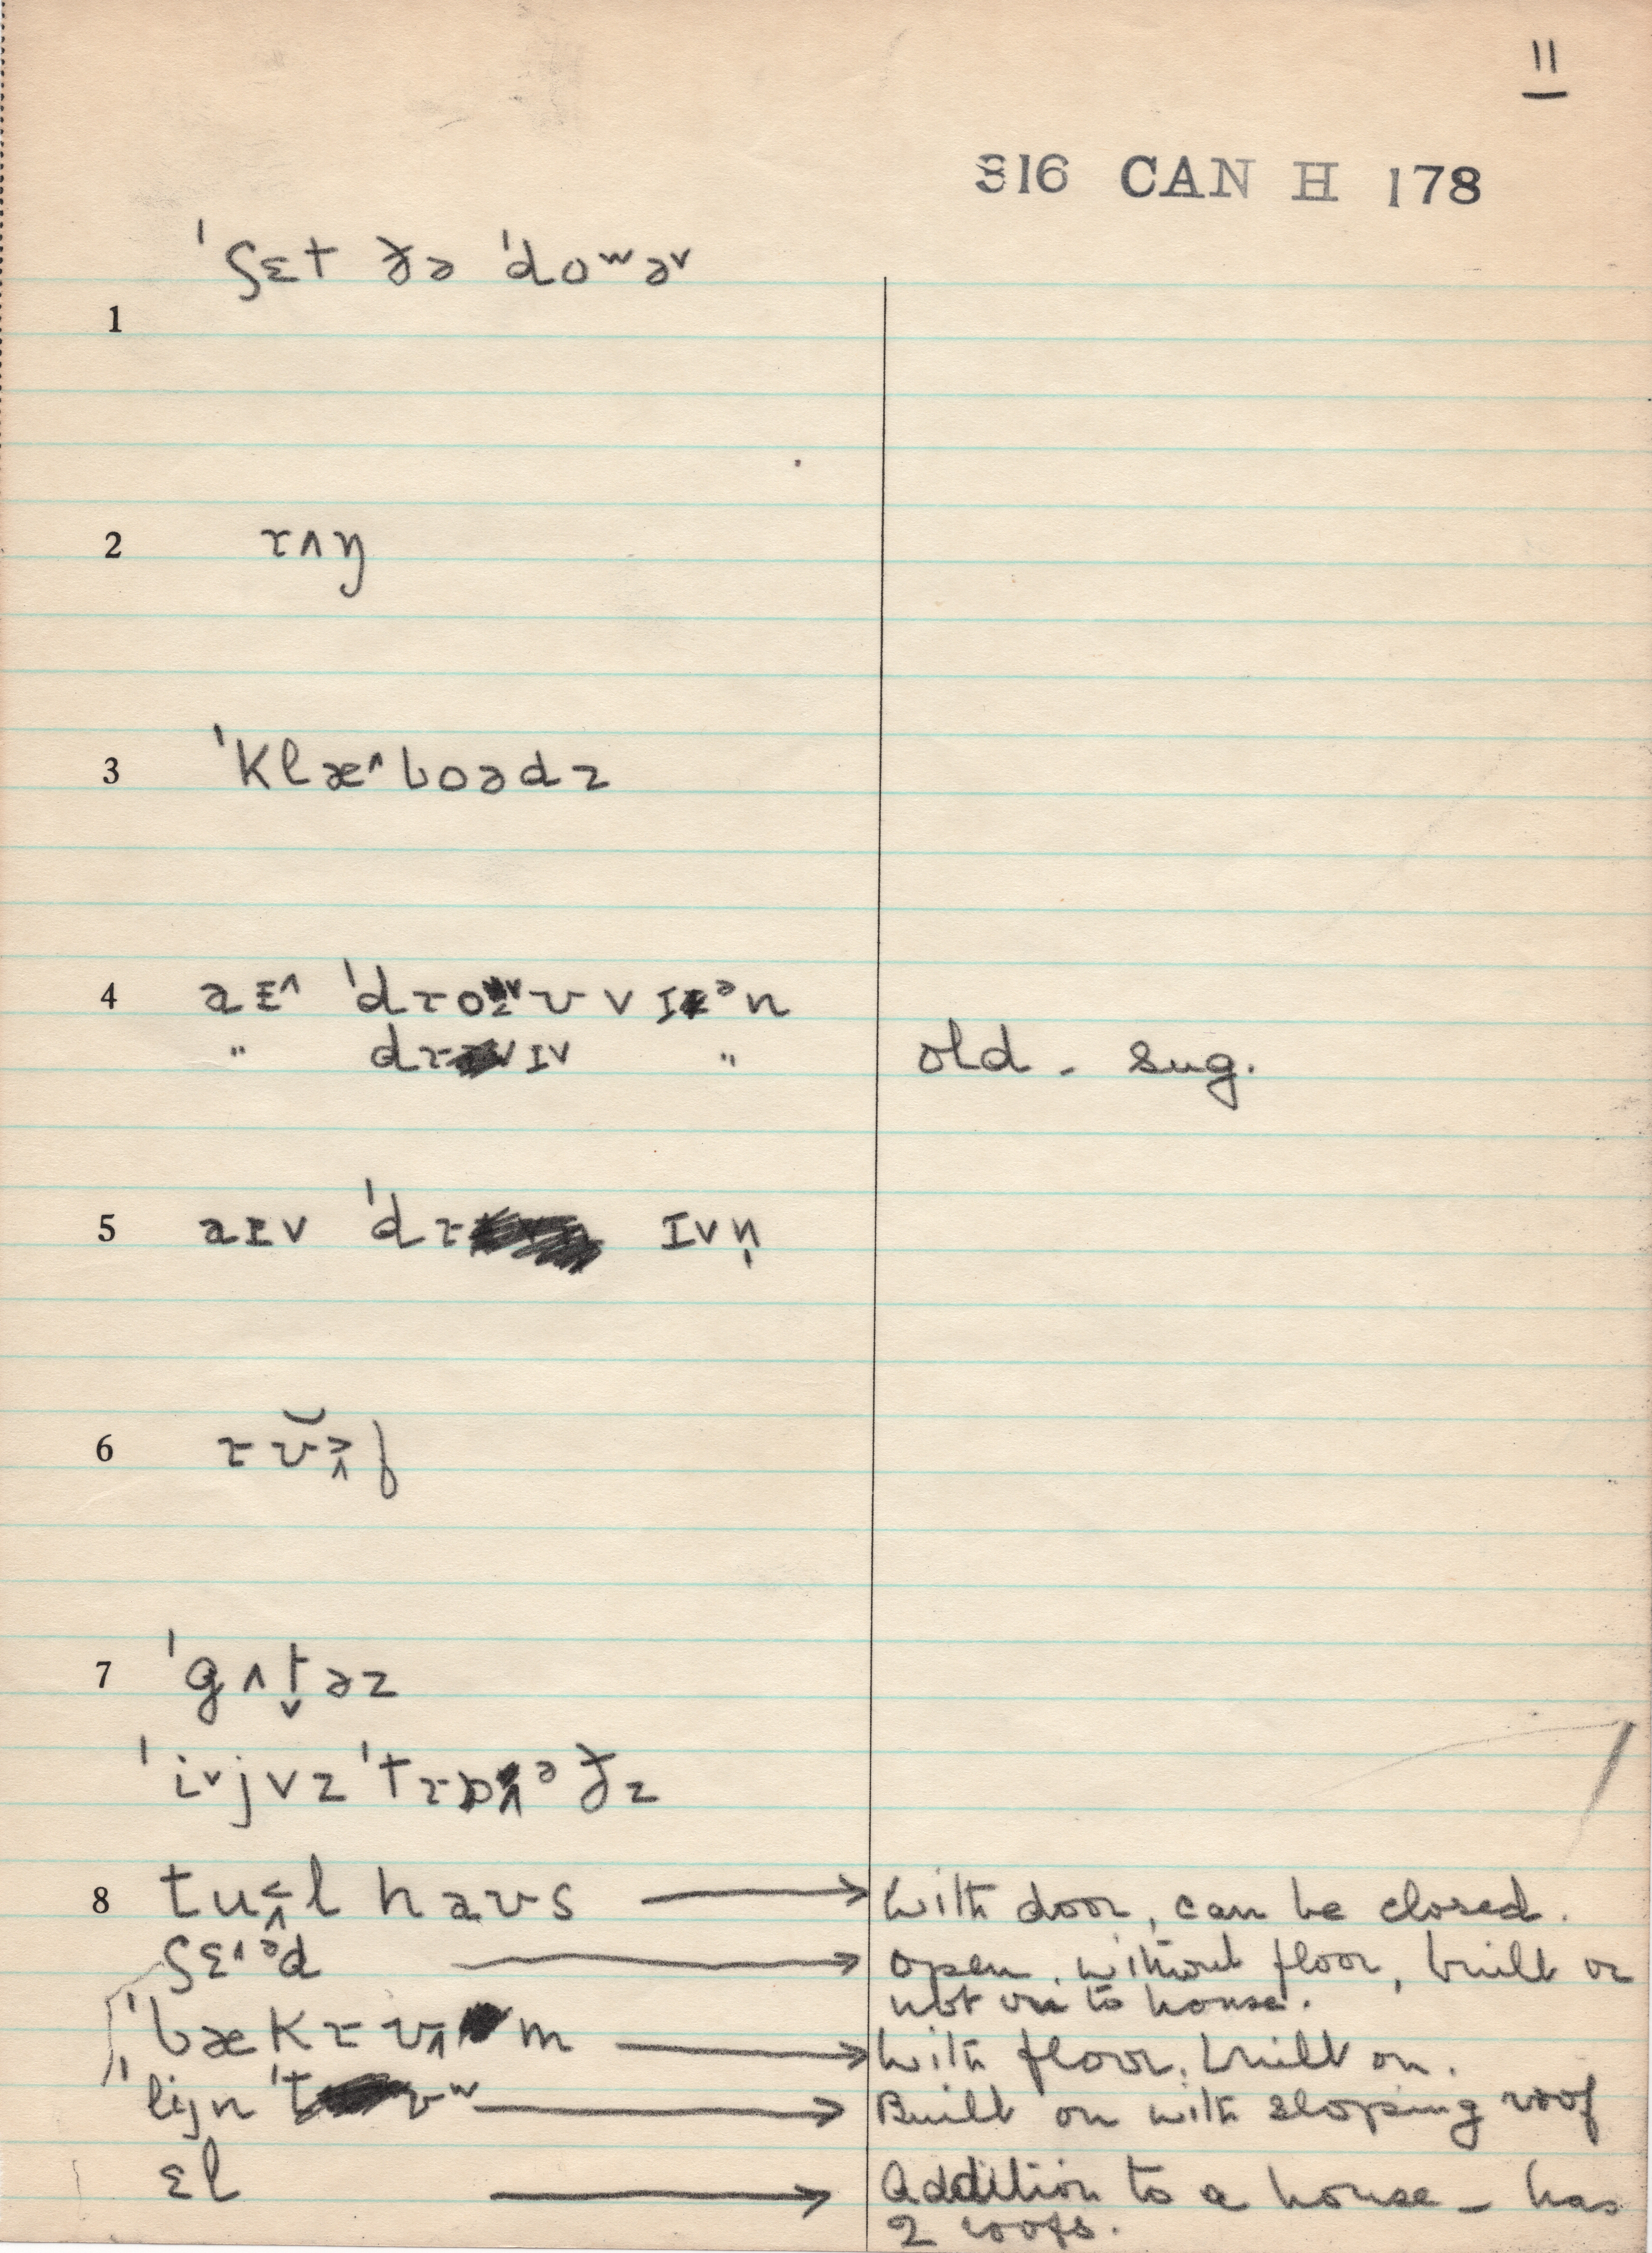 11
316 CAN H 178
ˈʃɛt ðə ˈdoʷə˅
1
2 rʌŋ
3 ˈklæ^boədz
4 aɪ^ ˈdroʊvɪᵊn
" drɪ˅v " old - sug.
5 aɪv ˈdrɪvn̩
6
7 ˈgʌt̬əz
ˈi˅jvz ˈtrɒᵊðz
8 tuəl haʊs → With door, can be closed.
ʃɛ^ᵊd → open, without floor, built or
not on to house.
ˈbækrʊm → With floor, built on.
ˈlijn ˈtʊʷ → Built on with sloping roof
ɛl → Addition to a house - has
2 roofs.